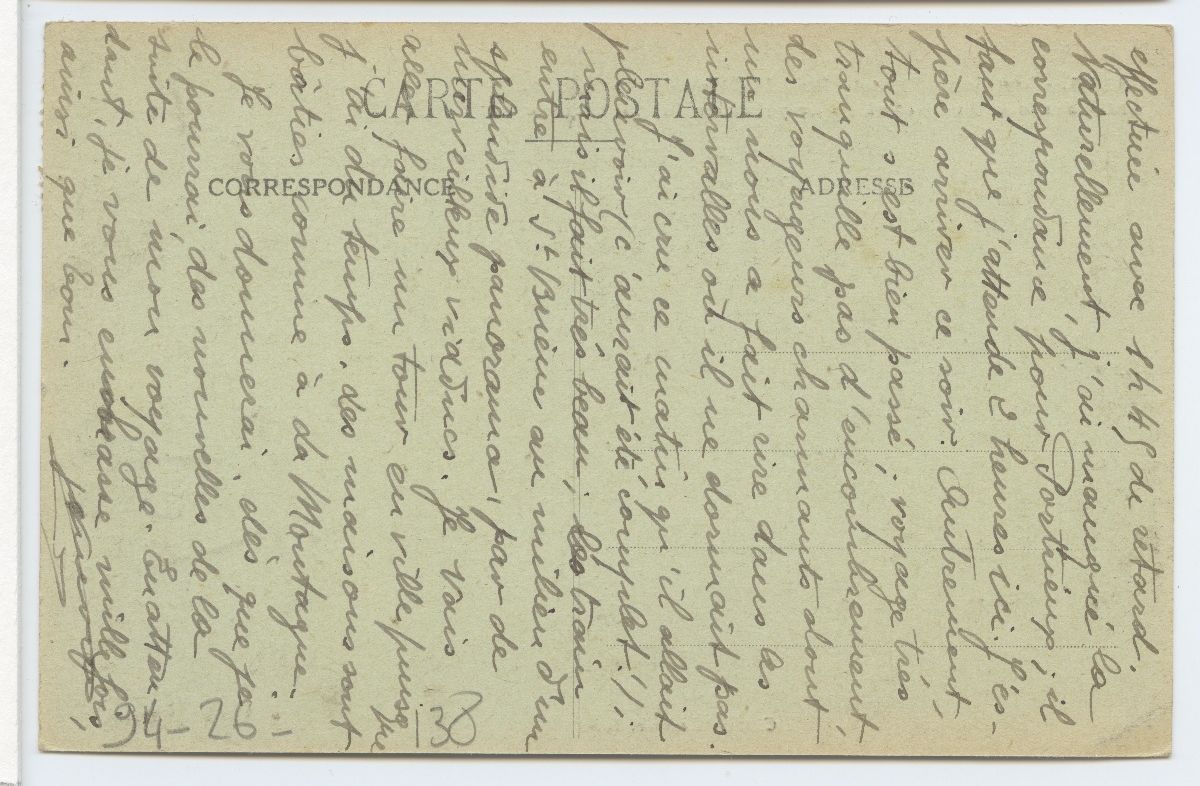 CARTE POSTALE
CORRESPONDANCE
ADRESSE
effectuée avec 1h 45 de retard.
Naturellement, j'ai manqué la
correspondance pour Portrieux, il
faut que j'attende 2 heures ici. J'es-
père arriver ce soir. Autrement,
tout s'est bien passé, voyage très
tranquille pas d'encombrement,
des voyageurs charmants dont
un nous a fait rire dans les
intervalles où il ne dormait pas.
J'ai cru ce matin qu'il allait
pleuvoir (c'aurait été complet!);
mais il fait très beau, les train
entre à St Brieuc au milieu d'un
splendide panorama, par de
merveilleux viaducs. Je vais
aller faire un tour en ville puisque
j'ai du temps. des maisons sont
bâties comme à la Montagne.
Je vous donnerai, dès que je
le pourrai des nouvelles de la
suite de mon voyage. En atten-
dant, je vous embrasse mille fois,
ainsi que
94-26-
138